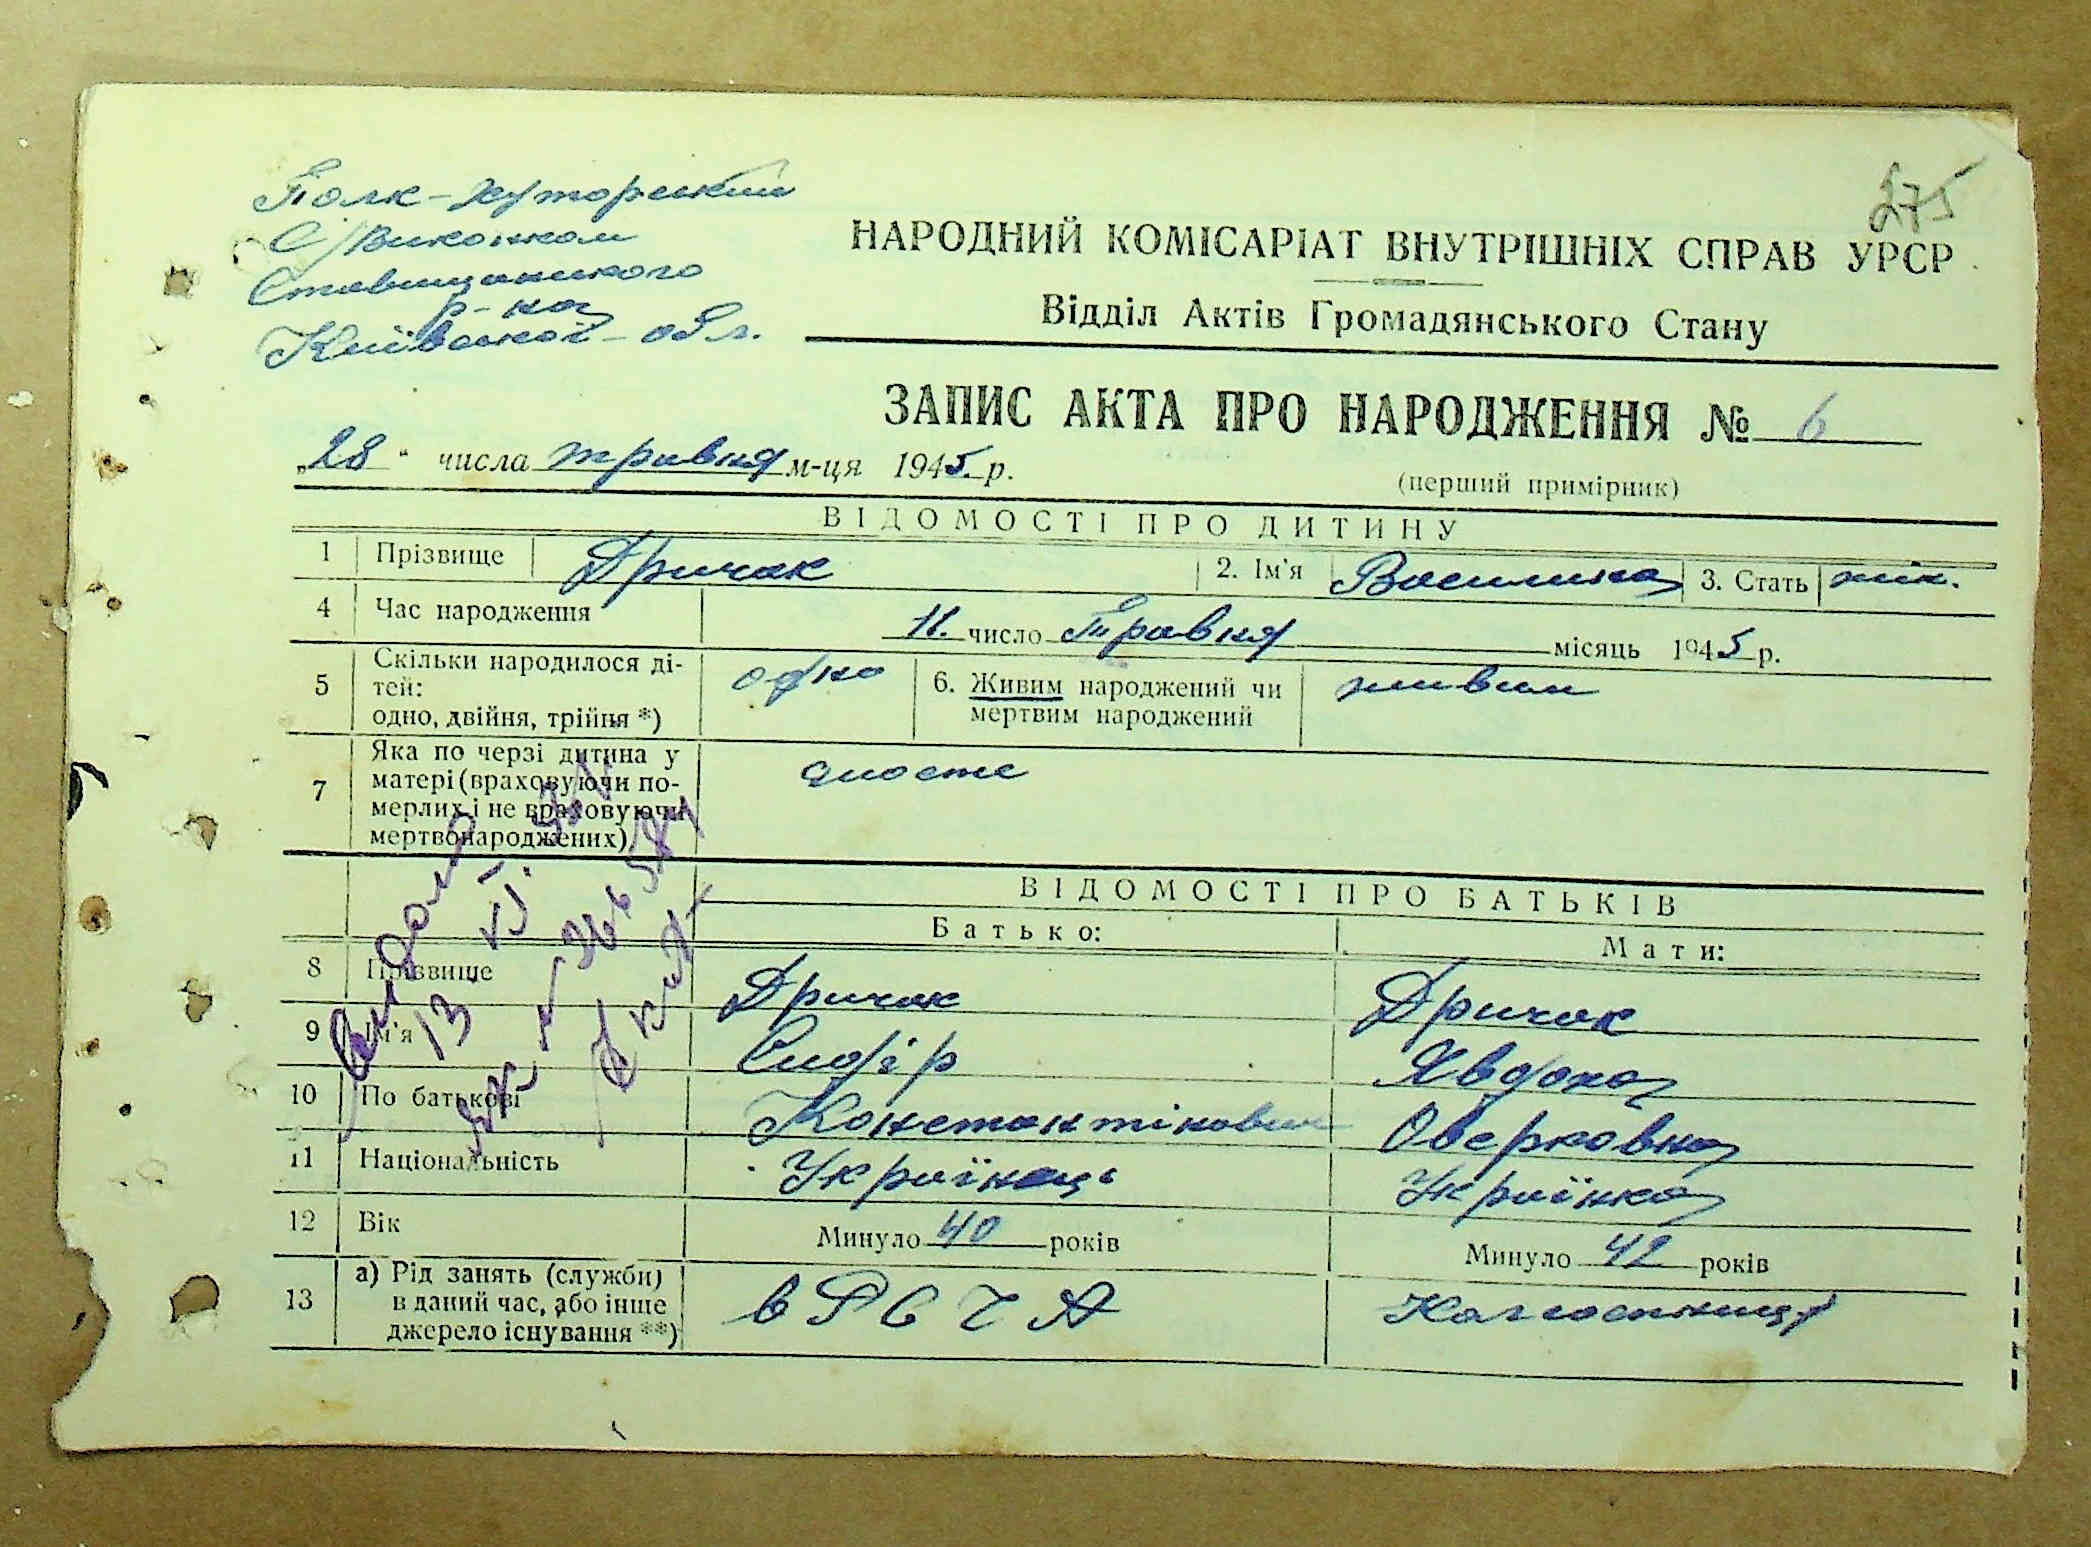 275
Полк-хуторський
С/Виконком
Ставищанського
р-на
Київської-обл.
НАРОДНИЙ КОМІСАРІАТ ВНУТРІШНІХ СПРАВ УРСР
Відділ Актів Громадянського Стану
ЗАПИС АКТА ПРО НАРОДЖЕННЯ № 6
„28“ числа травня м-ця 1945 р.
(перший примірник)
ВІДОМОСТІ ПРО ДИТИНУ
1 Прізвище Дричак 2. Ім'я Василина 3. Стать жін.
4 Час народження 11. число Травня місяць 1945 р.
5 Скільки народилося ді-
тей:
одно, двійня, трійня *) одно 6. Живим народжений чи
мертвим народжений живим
7 Яка по черзі дитина у
матері (враховуючи по-
мерлих і не враховуючи
мертвонароджених) шосте
ВІДОМОСТІ ПРО БАТЬКІВ
Батько: Мати:
8 Прізвище Дричак Дричак
9 Ім'я Сидір Явдоха
10 По батькові Константінович Оверковна
11 Національність Українець Українка
12 Вік Минуло 40 років Минуло 42 років
13 а) Рід занять (служби)
в даний час, або інше
джерело існування **) в РСЧА Колгоспниця
13 VI.